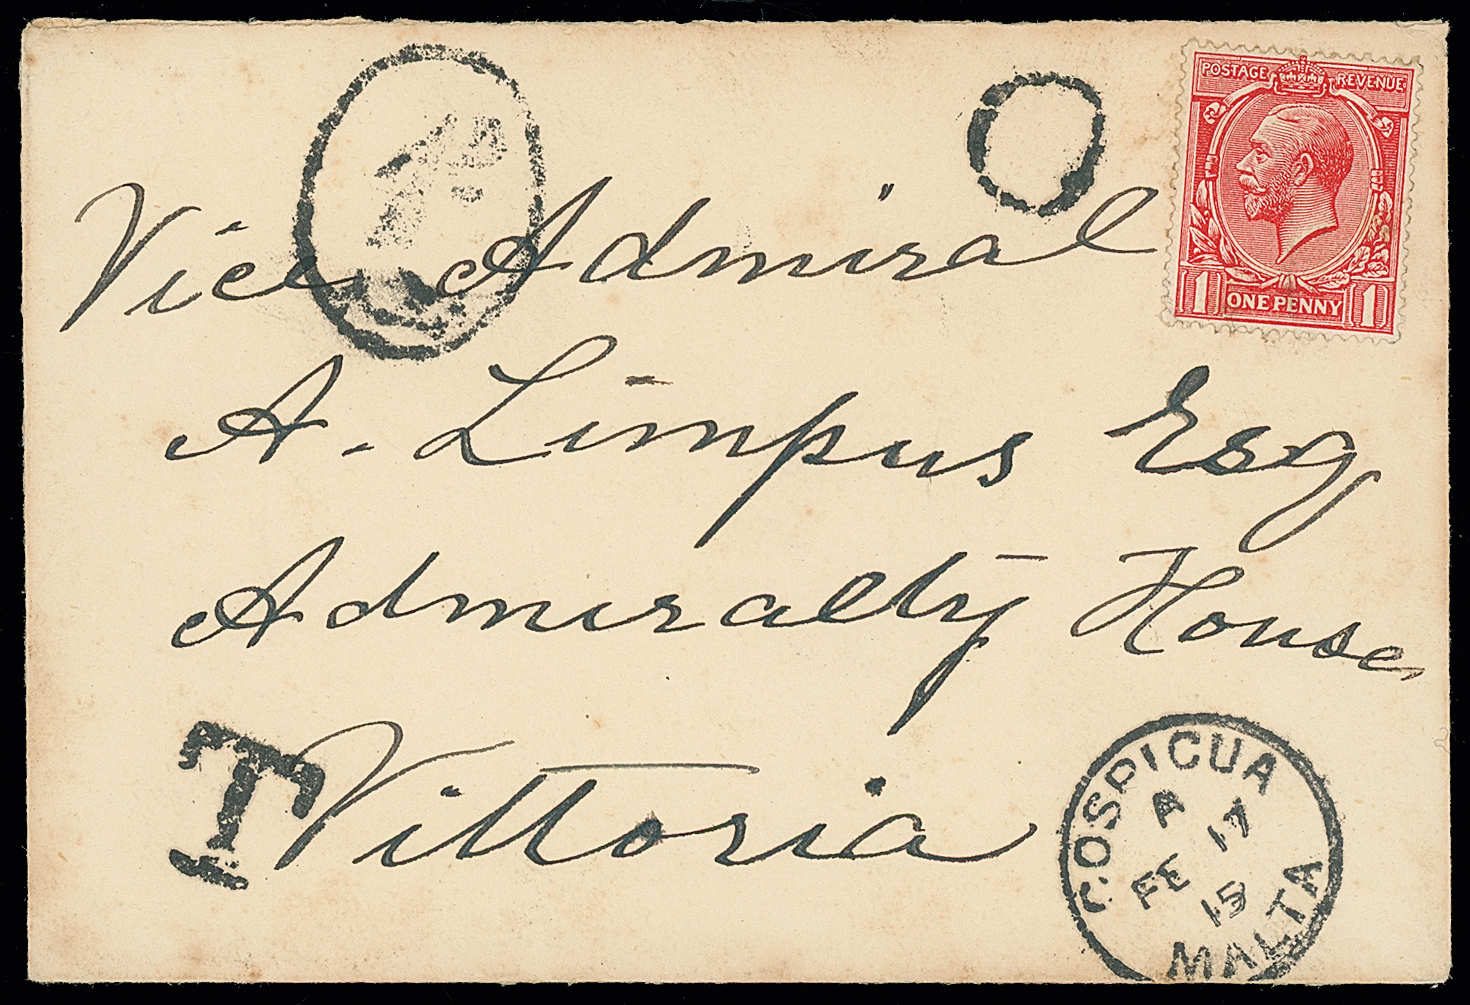 POSTAGE REVENUE
1 ONE PENNY 1
Vice Admiral
A. Limpus Esq
Admiralty House
Vittoria
T
COSPICUA
A
FE 17
15
MALTA